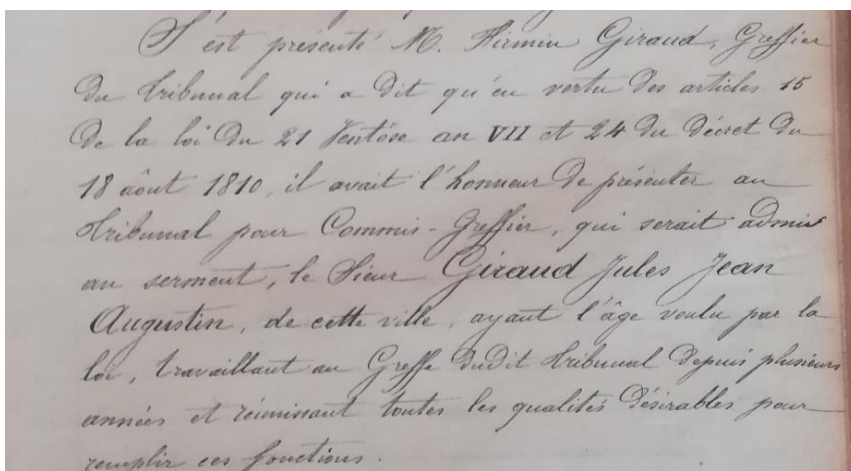 S'est présenté M. Firmin Giraud, Greffier
du tribunal qui a dit qu'en vertu des articles 15
de la loi du 21 Ventôse an VII et 24 du décret du
18 août 1810, il avait l'honneur de présenter au
tribunal pour Commis-Greffier, qui serait admis
au serment, le Sieur Giraud Jules Jean
Augustin, de cette ville, ayant l'âge voulu par la
loi, travaillant au Greffe dudit tribunal depuis plusieurs
années et réunissant toutes les qualités désirables pour
remplir ces fonctions.